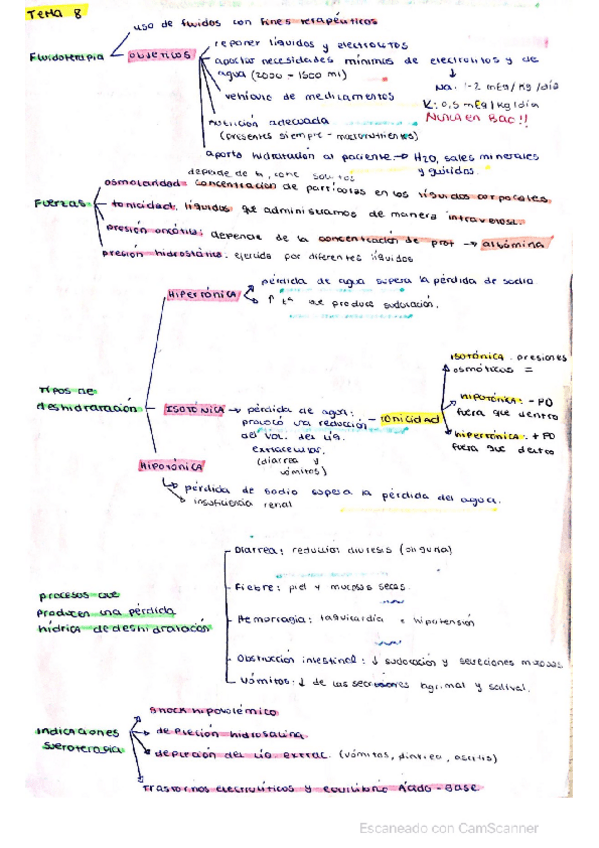 Tema 8
uso de fluidos con fines terapéuticos
Fluidoterapia
objetivos
reponer líquidos y electrolitos
aportar necesidades mínimas de electrolitos y de
agua (2000 - 1500 ml)
Na: 1-2 mEq/kg/día
K: 0,5 mEq/kg/día
Nunca en Bac!!
vehículo de medicamentos
nutrición adecuada
(presentes siempre - macronutrientes)
aporta hidratación al paciente → H2O, sales minerales
Fuerzas
osmolaridad. concentración de partículas en los líquidos corporales.
tonicidad. líquidos que administramos de manera intravenosa.
presión oncótica: depende de la concentración de prot → albúmina
presión hidrostática. ejercida por diferentes líquidos
Tipos de
deshidratación
Hipertónica
pérdida de agua supera la pérdida de sodio
↑ tª que produce sudoración.
ISOTÓNICA → pérdida de agua:
provocó una reducción
del vol. del líq.
extracelular.
(diarrea y
vómitos)
TONICIDAD
isotónica. presiones
osmóticas =
hipotónica: - PO
fuera que dentro
hipertónica: + PO
fuera que dentro
Hipotónica
pérdida de sodio supera la pérdida del agua.
insuficiencia renal
procesos que
producen una pérdida
hídrica de deshidratación
Diarrea: reducción diuresis (oliguria)
Fiebre: piel y mucosas secas.
Hemorragia: taquicardia e hipotensión
Obstrucción intestinal: ↓ sudoración y secreciones mucosas
Vómitos: ↓ de las secreciones lagrimal y salival.
Indicaciones
sueroterapia
shock hipovolémico
depleción hidrosalina
depleción del líq. extrac. (vómitos, diarrea, ascitis)
Trastornos electrolíticos y equilibrio Ácido-Base
Escaneado con CamScanner